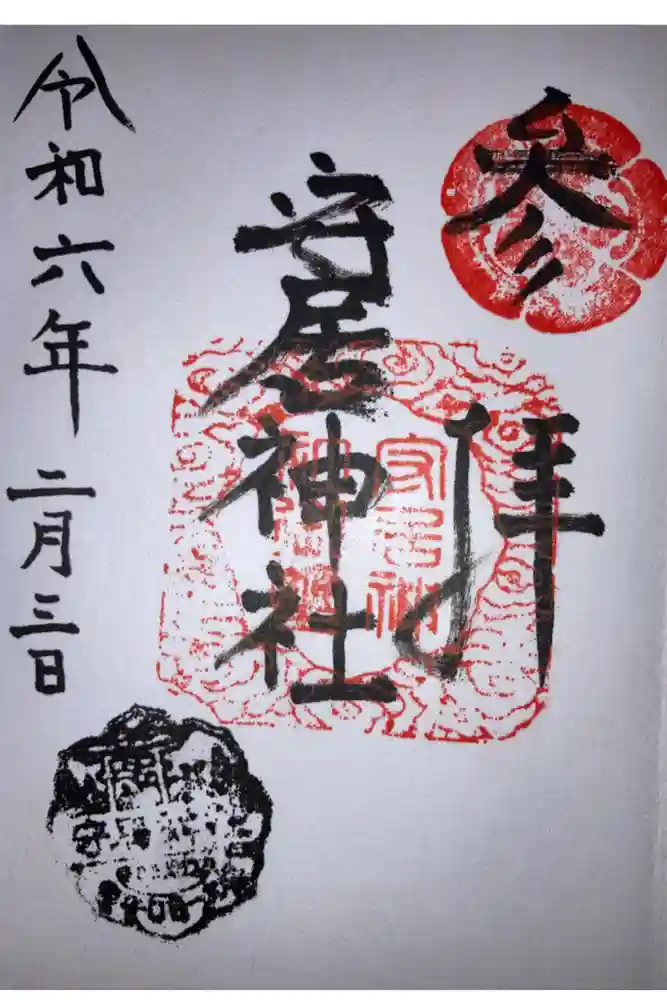 参拝
安居神社
令和六年二月三日